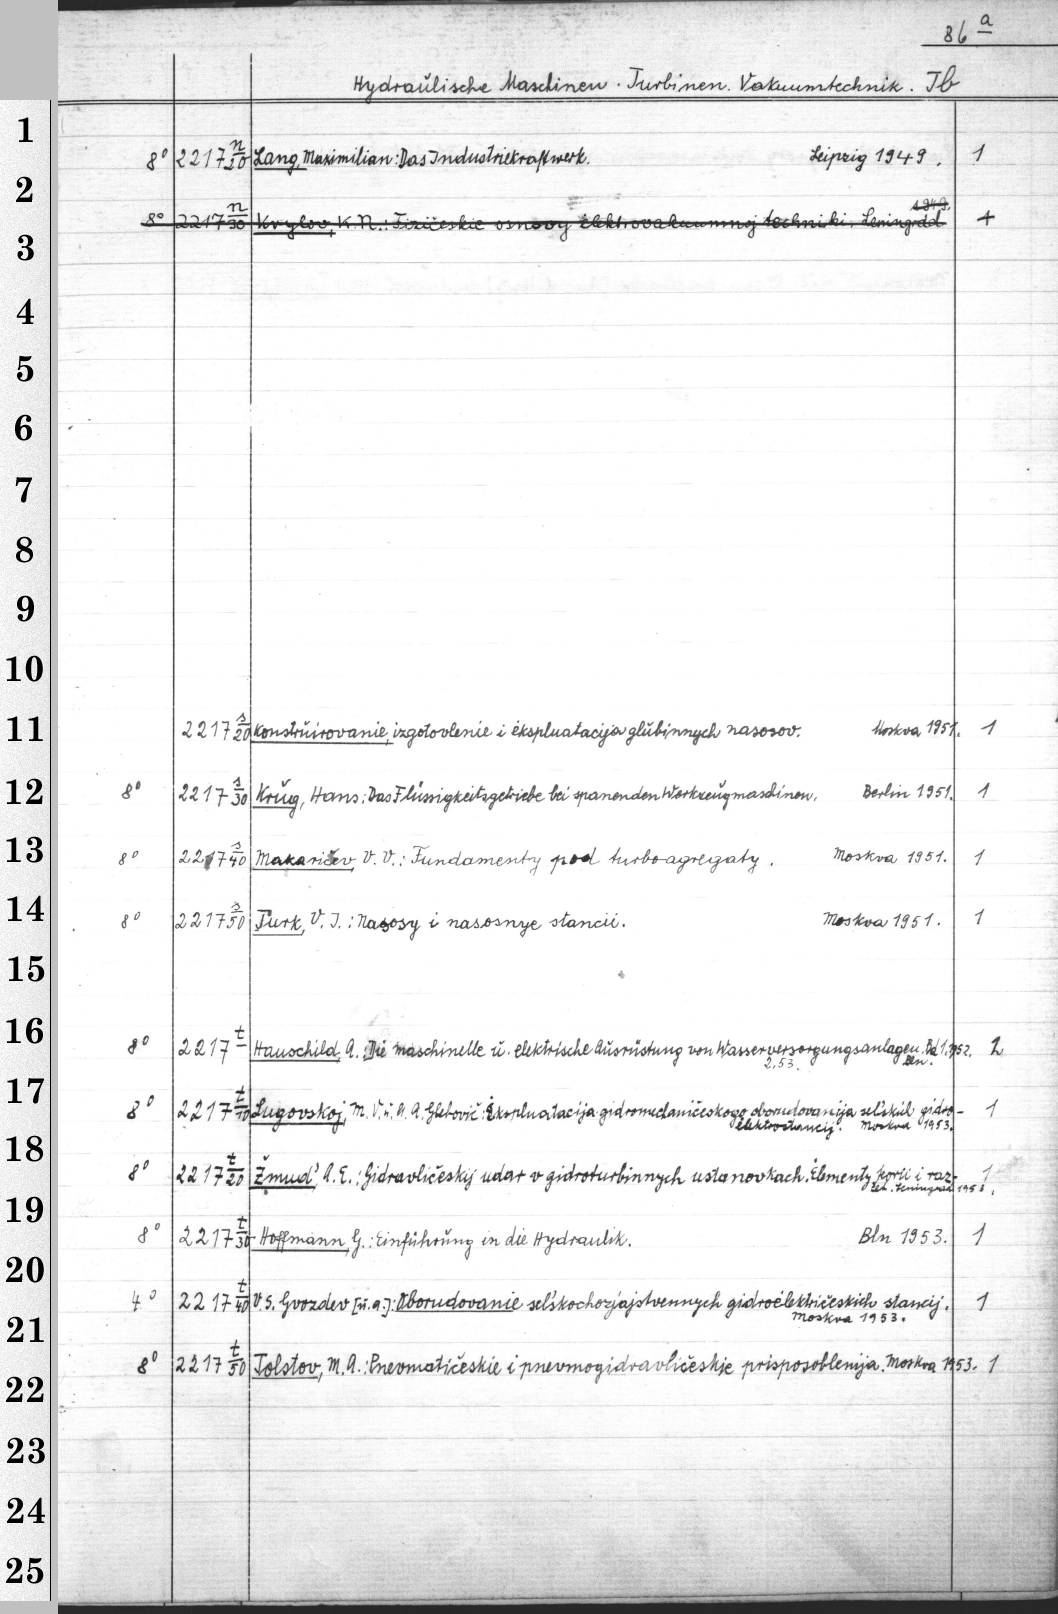 86 a
Hydraulische Maschinen. Turbinen. Vakuumtechnik. Tb
1
8° 2217 n/20 Lang, Maximilian: Das Industriekraftwerk. Leipzig 1949. 1
2
1949.
8° 2217 n/30 Krylov, K. N.: Fizičeskie osnovy ėlektrovakuumnoj techniki. Leningrad 1
3
4
5
6
7
8
9
10
11 2217 s/20 Konstruirovanie, izgotovlenie i ėkspluatacija glubinnych nasosov. Moskva 1951. 1
12 8° 2217 s/30 Krug, Hans: Das Flüssigkeitsgetriebe bei spanenden Werkzeugmaschinen. Berlin 1951. 1
13 8° 2217 s/40 Makaričev, V. V.: Fundamenty pod turboagregaty. Moskva 1951. 1
14 8° 2217 s/50 Turk, V. I.: Nasosy i nasosnye stancii. Moskva 1951. 1
15
16
8° 2217 t Hauschild, A.: Die maschinelle u. elektrische Ausrüstung von Wasserversorgungsanlagen. Bd 1. 1952. 2
2. 53. Bln.
17
8° 2217 t/10 Lugovskoj, M. V. u. A. A. Glebovič: Ėkspluatacija gidromechaničeskogo oborudovanija sel'skich gidro- 1
ėlektrostancij. Moskva 1953.
18
8° 2217 t/20 Žmud', A. E.: Gidravličeskij udar v gidroturbinnych ustanovkach. Ėlementy teorii i raz- 1
Leningrad 1953.
19
8° 2217 t/30 Hoffmann, G.: Einführung in die Hydraulik. Bln 1953. 1
20
4° 2217 t/40 V. S. Gvozdev [u. a.]: Oborudovanie sel'skochozjajstvennych gidroėlektričeskich stancij. 1
Moskva 1953.
21
8° 2217 t/50 Tolstov, M. A.: Pnevmatičeskie i pnevmogidravličeskie prisposoblenija. Moskva 1953. 1
22
23
24
25